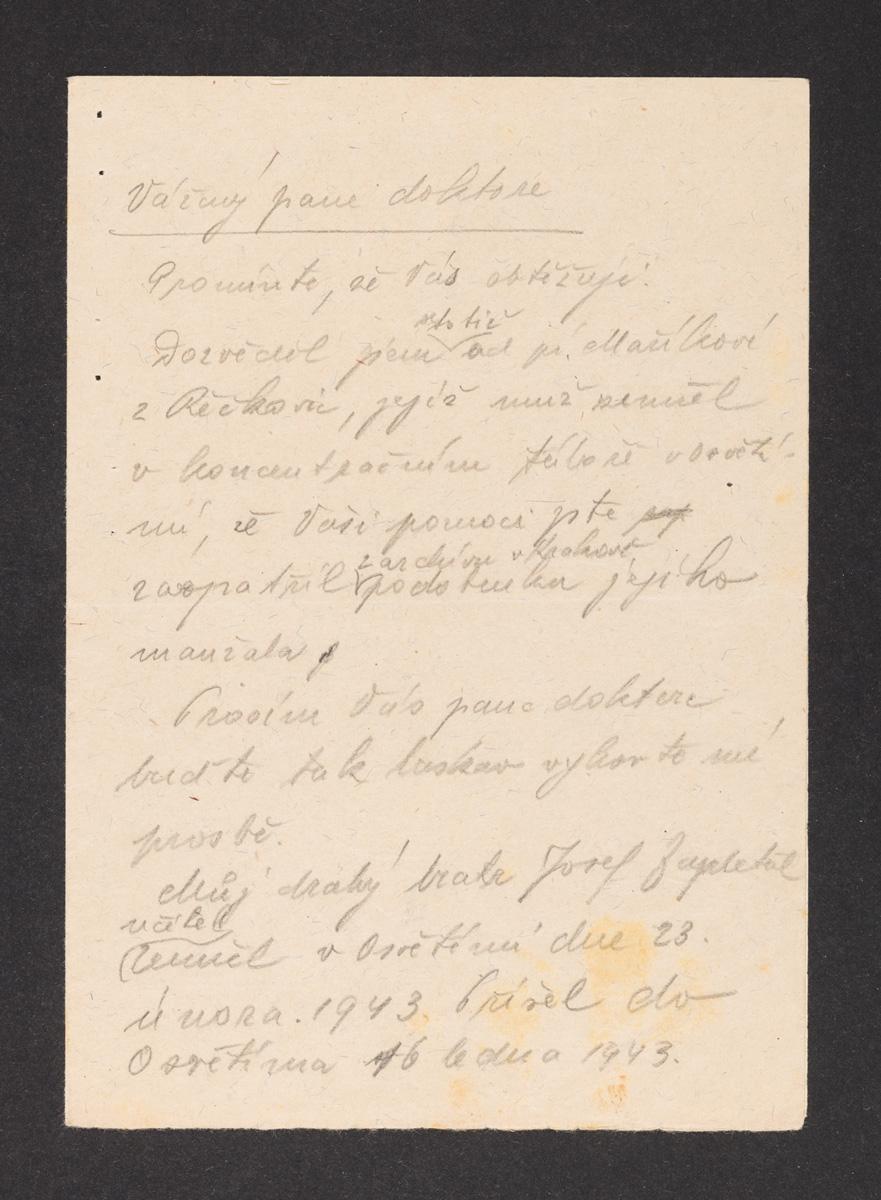 Vážný pane doktore
Promiňte, že Vás obtěžuji.
totiž
Dozvěděl jsem od pí. Maříkové
z Řečkovic, jejíž muž zemřel
v koncentračním táboře v Osvětí-
mi, že Vaší pomocí jste
z archivu v Krakově
zaopatřil podobenku jejího
manžela
Prosím Vás pane doktore
buďte tak laskav vyhovte mé
prosbě.
Můj drahý bratr Josef Zapletal
učitel
zemřel v Osvětimi dne 23.
února. 1943. Přišel do
Osvětima 16 ledna 1943.